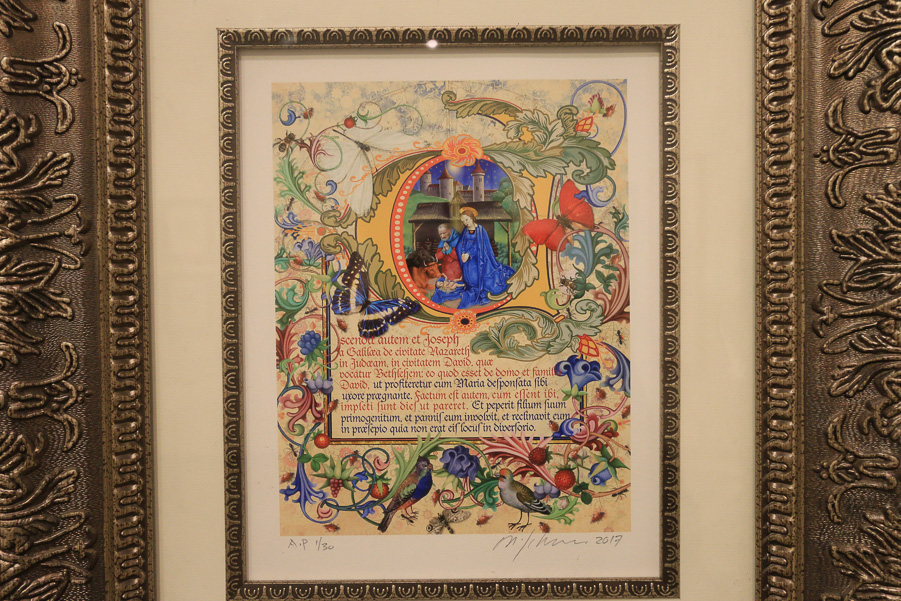 scendit autem et Joseph
a Galilæa de civitate Nazareth
in Judæam, in civitatem David, quæ
vocatur Bethlehem: eo quod esset de domo et famili
David, ut profiteretur cum Maria desponsata sibi
uxore prægnante. Factum est autem, cum essent ibi,
impleti sunt dies ut pareret. Et peperit filium suum
primogenitum, et pannis eum involvit, et reclinavit eum
in præsepio quia non erat eis locus in diversorio.
A.P 1/30
2017